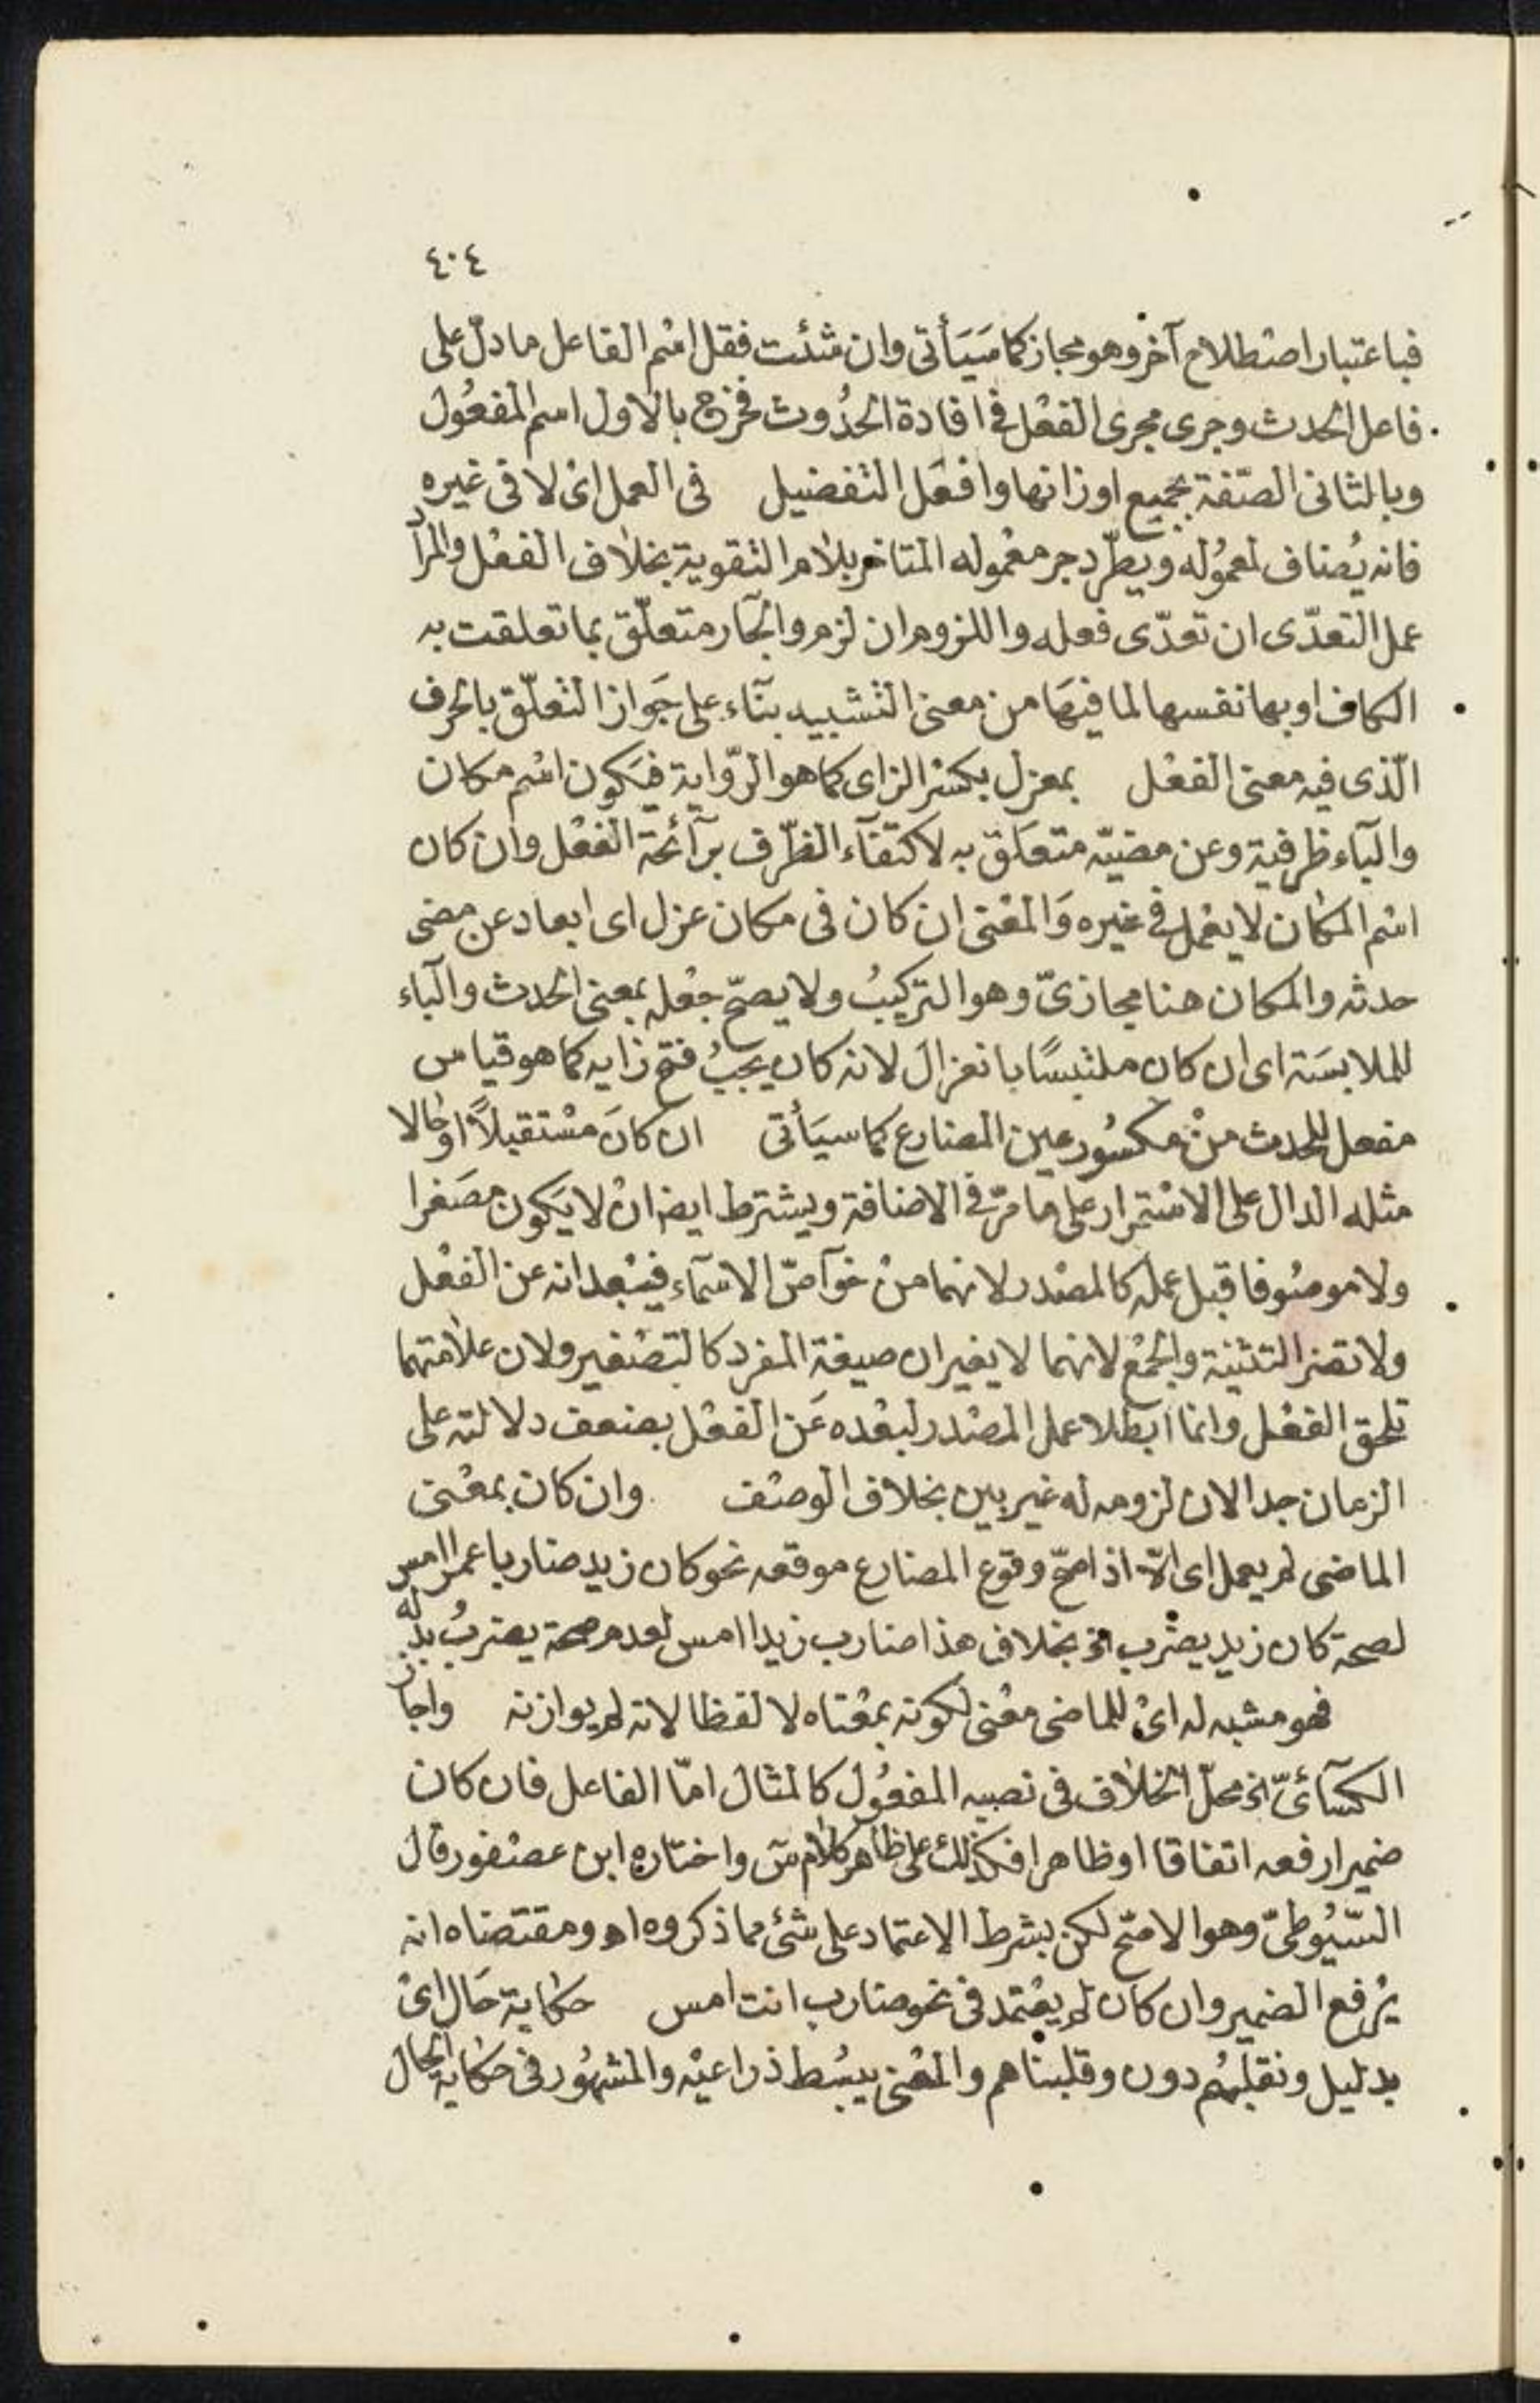 ٤٠٤
فباعتبار اصطلاح آخر وهو مجاز كما سَيَأتى وان شئت فقل اسْم الفاعل ما دلّ على
فاعل الحدث وجرى مجرى الفعْل فى افادة الحدُوث فخرج بالاول اسم المفعُول
وبالثانى الصّفة بجميع اوزانها وافعَل التفضيل فى العمل اىْ لا فى غيره
فانه يُضاف لمعمُوله ويطّرد جر معْموله المتاخر بلام التقوية بخلاف الفعْل والمراد
عمل التعدّى ان تعدّى فعله واللزوم ان لزم والجار متعلّق بما تعلقت به
الكاف او بها نفسها لما فيهَا من معنى التشبيه بنآء على جَواز التعلّق بالحرف
الّذى فيه معنى الفعْل بمعزل بكسْر الزاى كما هو الرّواية فيَكون اسْم مكان
والبآء ظرفية وعن مضيّه متعَلق به لاكتفآء الظّرف برآئحة الفعْل وان كان
اسْم المكان لا يعْمل فى غيره وَالمعْنى ان كان فى مكان عزل اى ابعاد عن مضى
حدثه والمكان هنا مجازىّ وهو التركيبُ ولا يصحّ جعْله بمعنى الحدث والبآء
للملابسَة اى ان كان ملتبسًا بانعزال لانه كان يجبُ فتح زايه كما هو قياس
مفعل للحدث منْ مكسُور عين المضارع كما سيَأتى ان كانَ مسْتقبلاً او حالا
مثله الدال على الاسْتمرار على ما مرّ فى الاضافة ويشترط ايضا انْ لا يَكون مصَغرا
ولا موصُوفا قبل عمله كالمصْدر لانهما منْ خوآصّ الاسمآء فيبْعدانه عن الفعْل
ولا تضر التثنية والجمْع لانهما لا يغيران صيغة المفرد كالتصْغير ولان علامتهما
تلحق الفعْل وانما ابطلا عمل المصْدر لبعْده عَن الفعْل بضعف دلالته على
الزمان جدا لان لزومه له غير بين بخلاف الوصْف وان كان بمعْنى
الماضى لم يعمل اى الّا اذا صحّ وقوع المضارع موقعه نحو كان زيد ضاربا عمرا امس
لصحة كان زيد يضْرب الخ بخلاف هذا ضارب زيدا امس لعدم صحة يضربُ بدله
فهو مشبه له اىْ للماضى معْنى لكونه بمعْناه لا لفظا لانه لم يوازنه واجاز
الكسآئىّ الخ محلّ الخلاف فى نصبه المفعُول كالمثال امّا الفاعل فان كان
ضميرا رفعه اتفاقا او ظاهرا فكذلك على ظاهر كلام س واختاره ابن عصْفور قال
السّيُوطىّ وهو الاصحّ لكن بشرط الاعتماد على شئ مما ذكروه اه ومقتضاه انه
يرْفع الضمير وان كان لم يعْتمد فى نحو ضارب انت امس حكاية حَال اىْ
بدليل ونقلبهُم دون وقلبناهم والمعْنى يبسُط ذراعيْه والمشهُور فى حكاية الحال